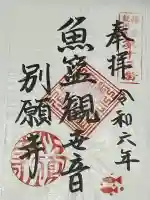 奉拝
令和六年
魚籃観世音
別願寺